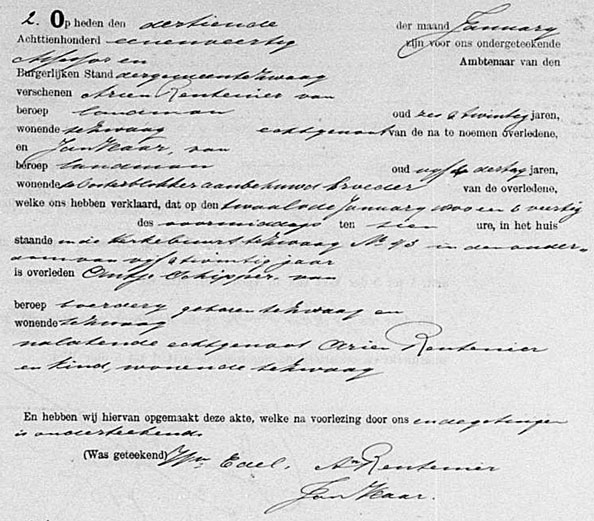 2. Op heden den dertiende der maand January
Achttienhonderd eenenveertig zijn voor ons ondergeteekende
Ambtenaar van den
Burgerlijken Stand der gemeente Zwaag
verschenen Arien Rentenier van
beroep landman oud zes & twintig jaren,
wonende te Zwaag echtgenoot van de na te noemen overledene,
en Jan Haar, van
beroep landman oud vyf & dertig jaren,
wonende te Oosterblokker aanbehuwd broeder van de overledene,
welke ons hebben verklaard, dat op den twaalfde January een & veertig
des voormiddags ten tien ure, in het huis
staande in de Kerkebuurt te Zwaag No 43 in den ouder-
dom van vyf & twintig jaar
is overleden Antje Schipper, van
beroep boerdery geboren te Zwaag en
wonende te Zwaag
nalatende echtgenoot Arien Rentenier
en kind, wonende te Zwaag
En hebben wij hiervan opgemaakt deze akte, welke na voorlezing door ons en de getuigen
is onderteekend.
(Was geteekend) Wm Edel, An Rentenier
Jan Haar.